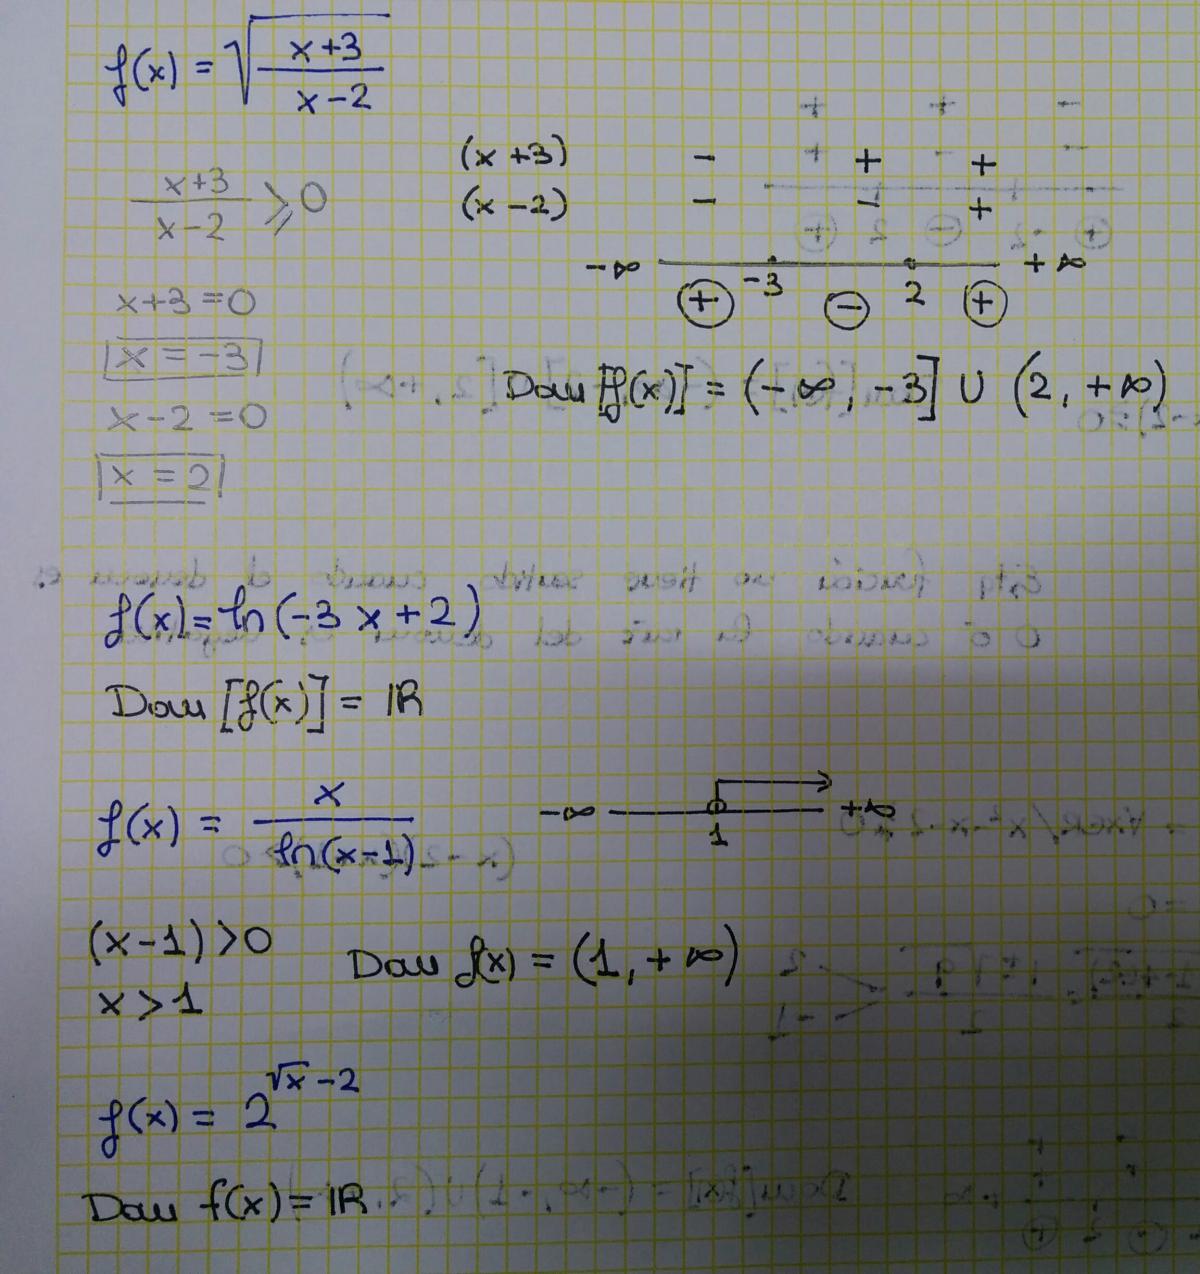 f(x) = √((x+3)/(x-2))
(x+3)/(x-2) ⩾ 0
x+3 = 0
x = -3
x-2 = 0
x = 2
(x+3) - + +
(x-2) - - +
-∞ -3 2 +∞
+ - +
Dom [f(x)] = (-∞, -3] ∪ (2, +∞)
f(x) = ln(-3x+2)
Dom [f(x)] = ℝ
f(x) = x/ln(x-1)
-∞ 1 +∞
(x-1) > 0
x > 1
Dom f(x) = (1, +∞)
f(x) = 2^(√x - 2)
Dom f(x) = ℝ